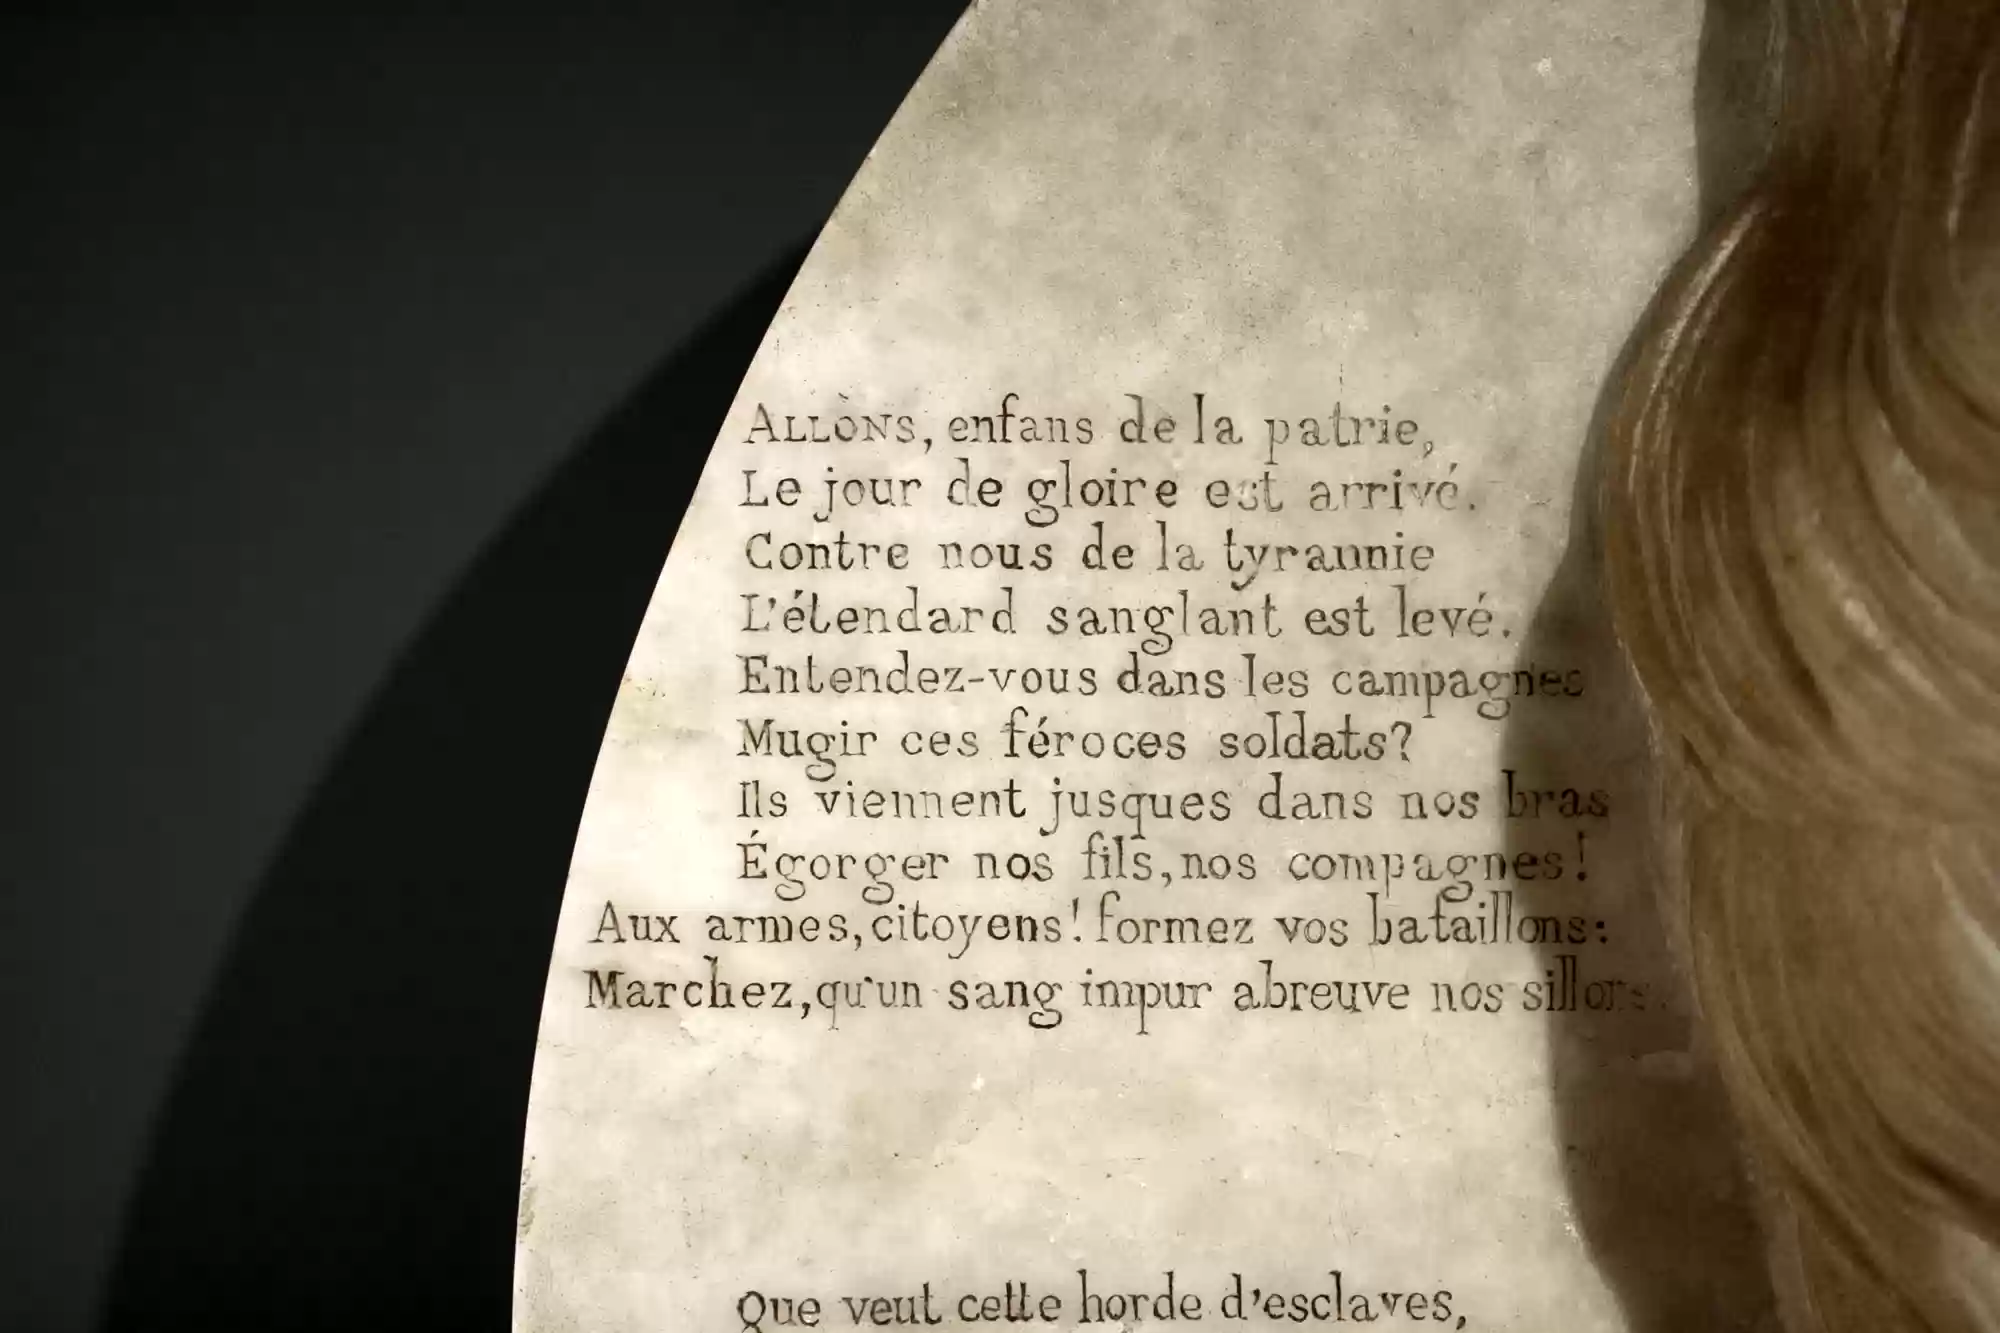 ALLONS, enfans de la patrie,
Le jour de gloire est arrivé.
Contre nous de la tyrannie
L'étendard sanglant est levé.
Entendez-vous dans les campagnes
Mugir ces féroces soldats?
Ils viennent jusques dans nos bras
Égorger nos fils, nos compagnes!
Aux armes, citoyens! formez vos bataillons:
Marchez, qu'un sang impur abreuve nos sillons.
Que veut cette horde d'esclaves,